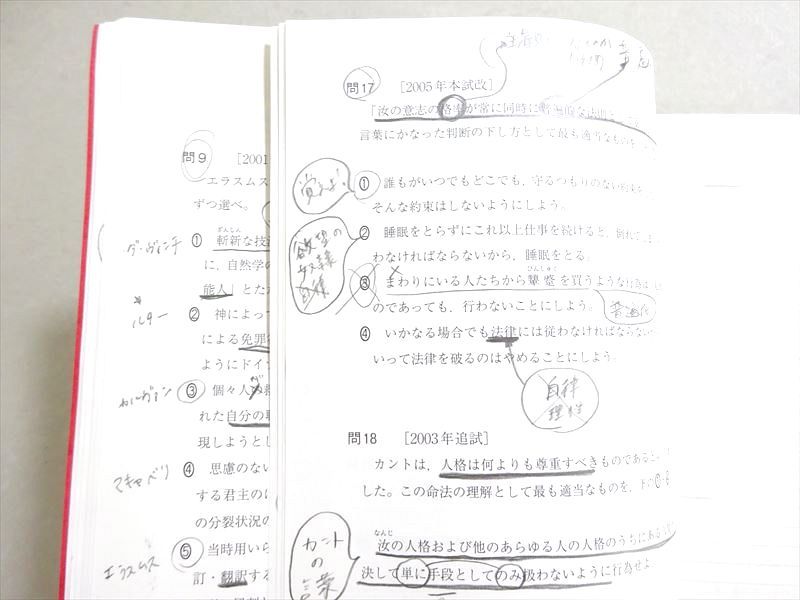 問9 [2001
エラスムス
ずつ選べ。
ダ・ヴィンチ
① 斬新な技
ざんしん
に，自然学の
能人」とた
ルター
② 神によっ
による免罪
ようにドイ
カルヴァン
③ 個々人
れた自分の
現しようとし
マキャベリ
④ 思慮のない
する君主の
の分裂状況の
エラスムス
⑤ 当時用いら
訂・翻訳する
問17 [2005年本試改]
「汝の意志の格率が常に同時に普遍的な法
言葉にかなった判断の下し方として最も適当なものを
覚えよ!
① 誰もがいつでもどこでも，守るつもりのない約束を
そんな約束はしないようにしよう。
欲望の
奴隷
② 睡眠をとらずにこれ以上仕事を続けると，倒れて
わなければならないから，睡眠をとる。
ひんしゅく
③ まわりにいる人たちから顰蹙を買うような行為は
のであっても，行わないことにしよう。
普遍的
④ いかなる場合でも法律には従わなければならない
いって法律を破るのはやめることにしよう
自律
理性
問18 [2003年追試]
カントは，人格は何よりも尊重すべきものであるこ
した。この命法の理解として最も適当なものを，下の①
カント
の
言
なんじ
汝の人格および他のあらゆる人の人格のうちにある
決して単に手段としてのみ扱わないように行為せよ